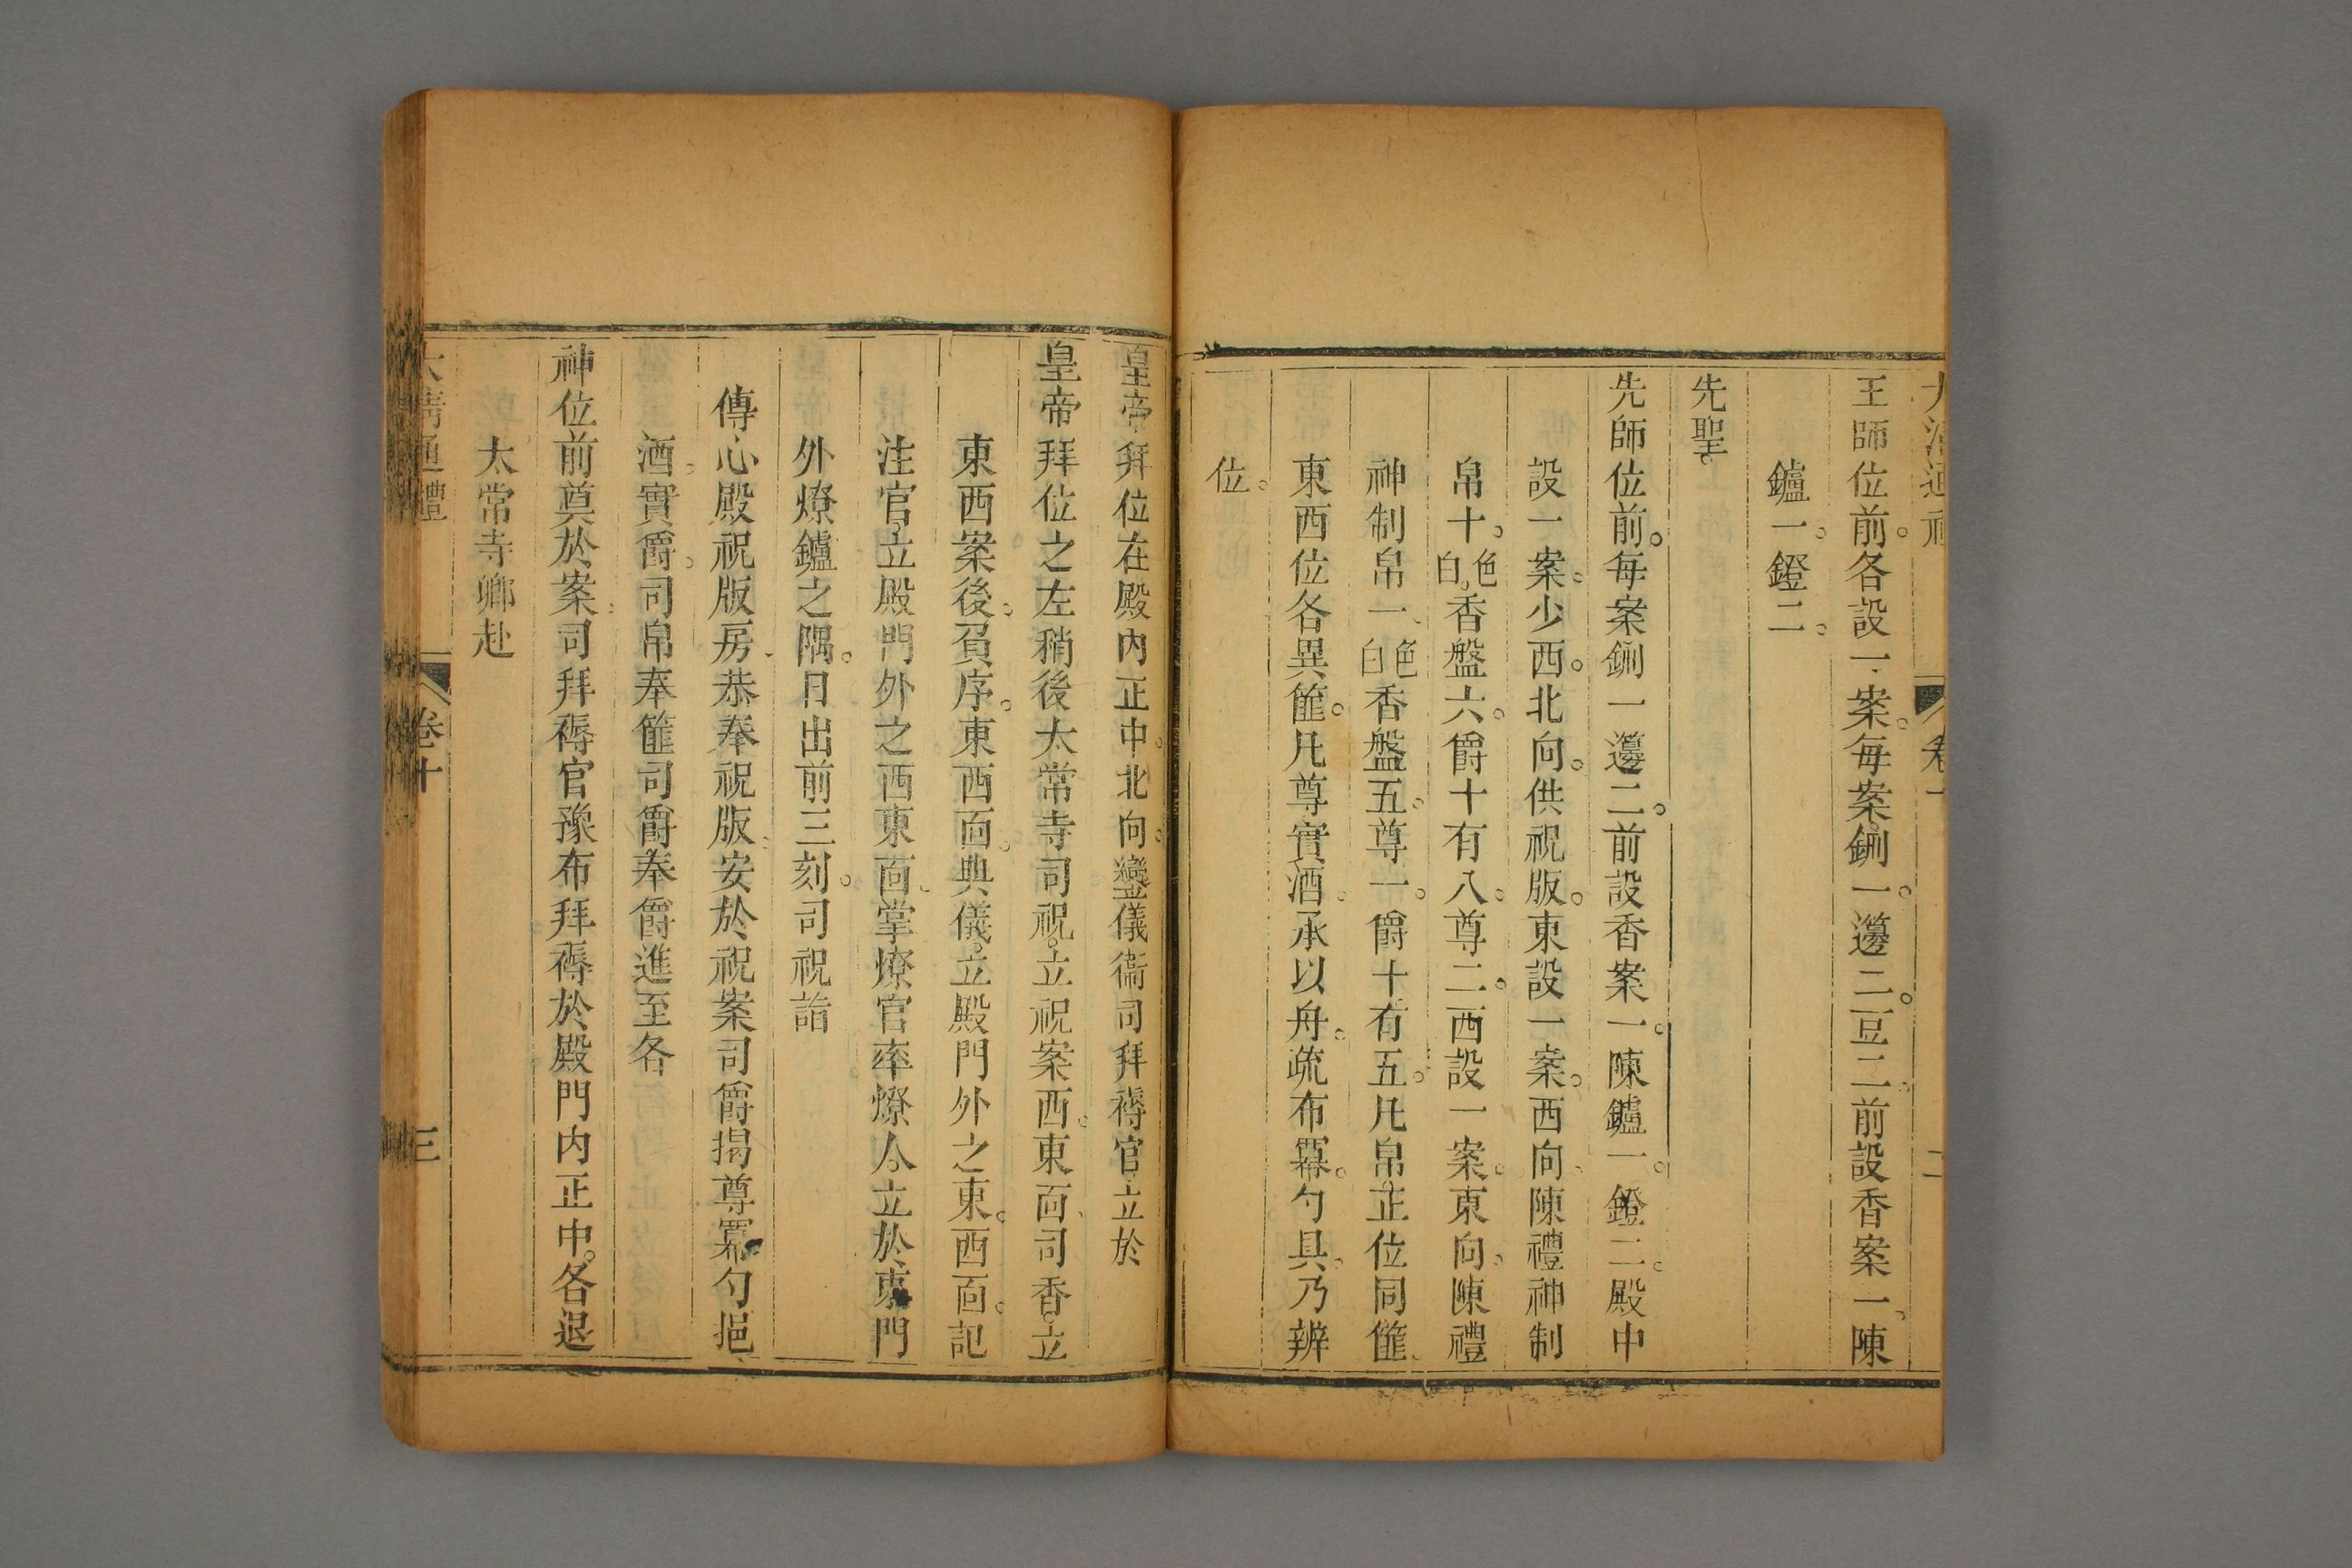 王師位前。各設一案。每案鉶一。籩二。豆二。前設香案一。陳
鑪一。鐙二。
先聖
先師位前。每案鉶一籩二。前設香案一。陳鑪一。鐙二。殿中
設一案。少西。北向。供祝版。東設一案。西向陳禮神制
帛十。色白。香盤六。爵十有八。尊二。西設一案。東向。陳禮
神制帛一。色白香盤五。尊一。爵十有五。凡帛正位同篚。
東西位各異篚。凡尊實酒。承以舟。疏布羃。勺具。乃辨
位。
皇帝拜位在殿內正中。北向。鑾儀衞司拜褥官立於
皇帝拜位之左稍後太常寺司祝。立祝案西。東面。司香。立
東西案後。負序。東西面。典儀。立殿門外之東。西面。記
注官。立殿門外之西東面。掌燎官率燎人。立於東門
外燎鑪之隅。日出前三刻。司祝詣
傳心殿祝版房。恭奉祝版。安於祝案司爵揭尊羃勺挹
酒。實爵。司帛奉篚司爵奉爵進至各
神位前奠於案。司拜褥官豫布拜褥於殿門內正中。各退
太常寺卿赴
大清通禮 卷十 三